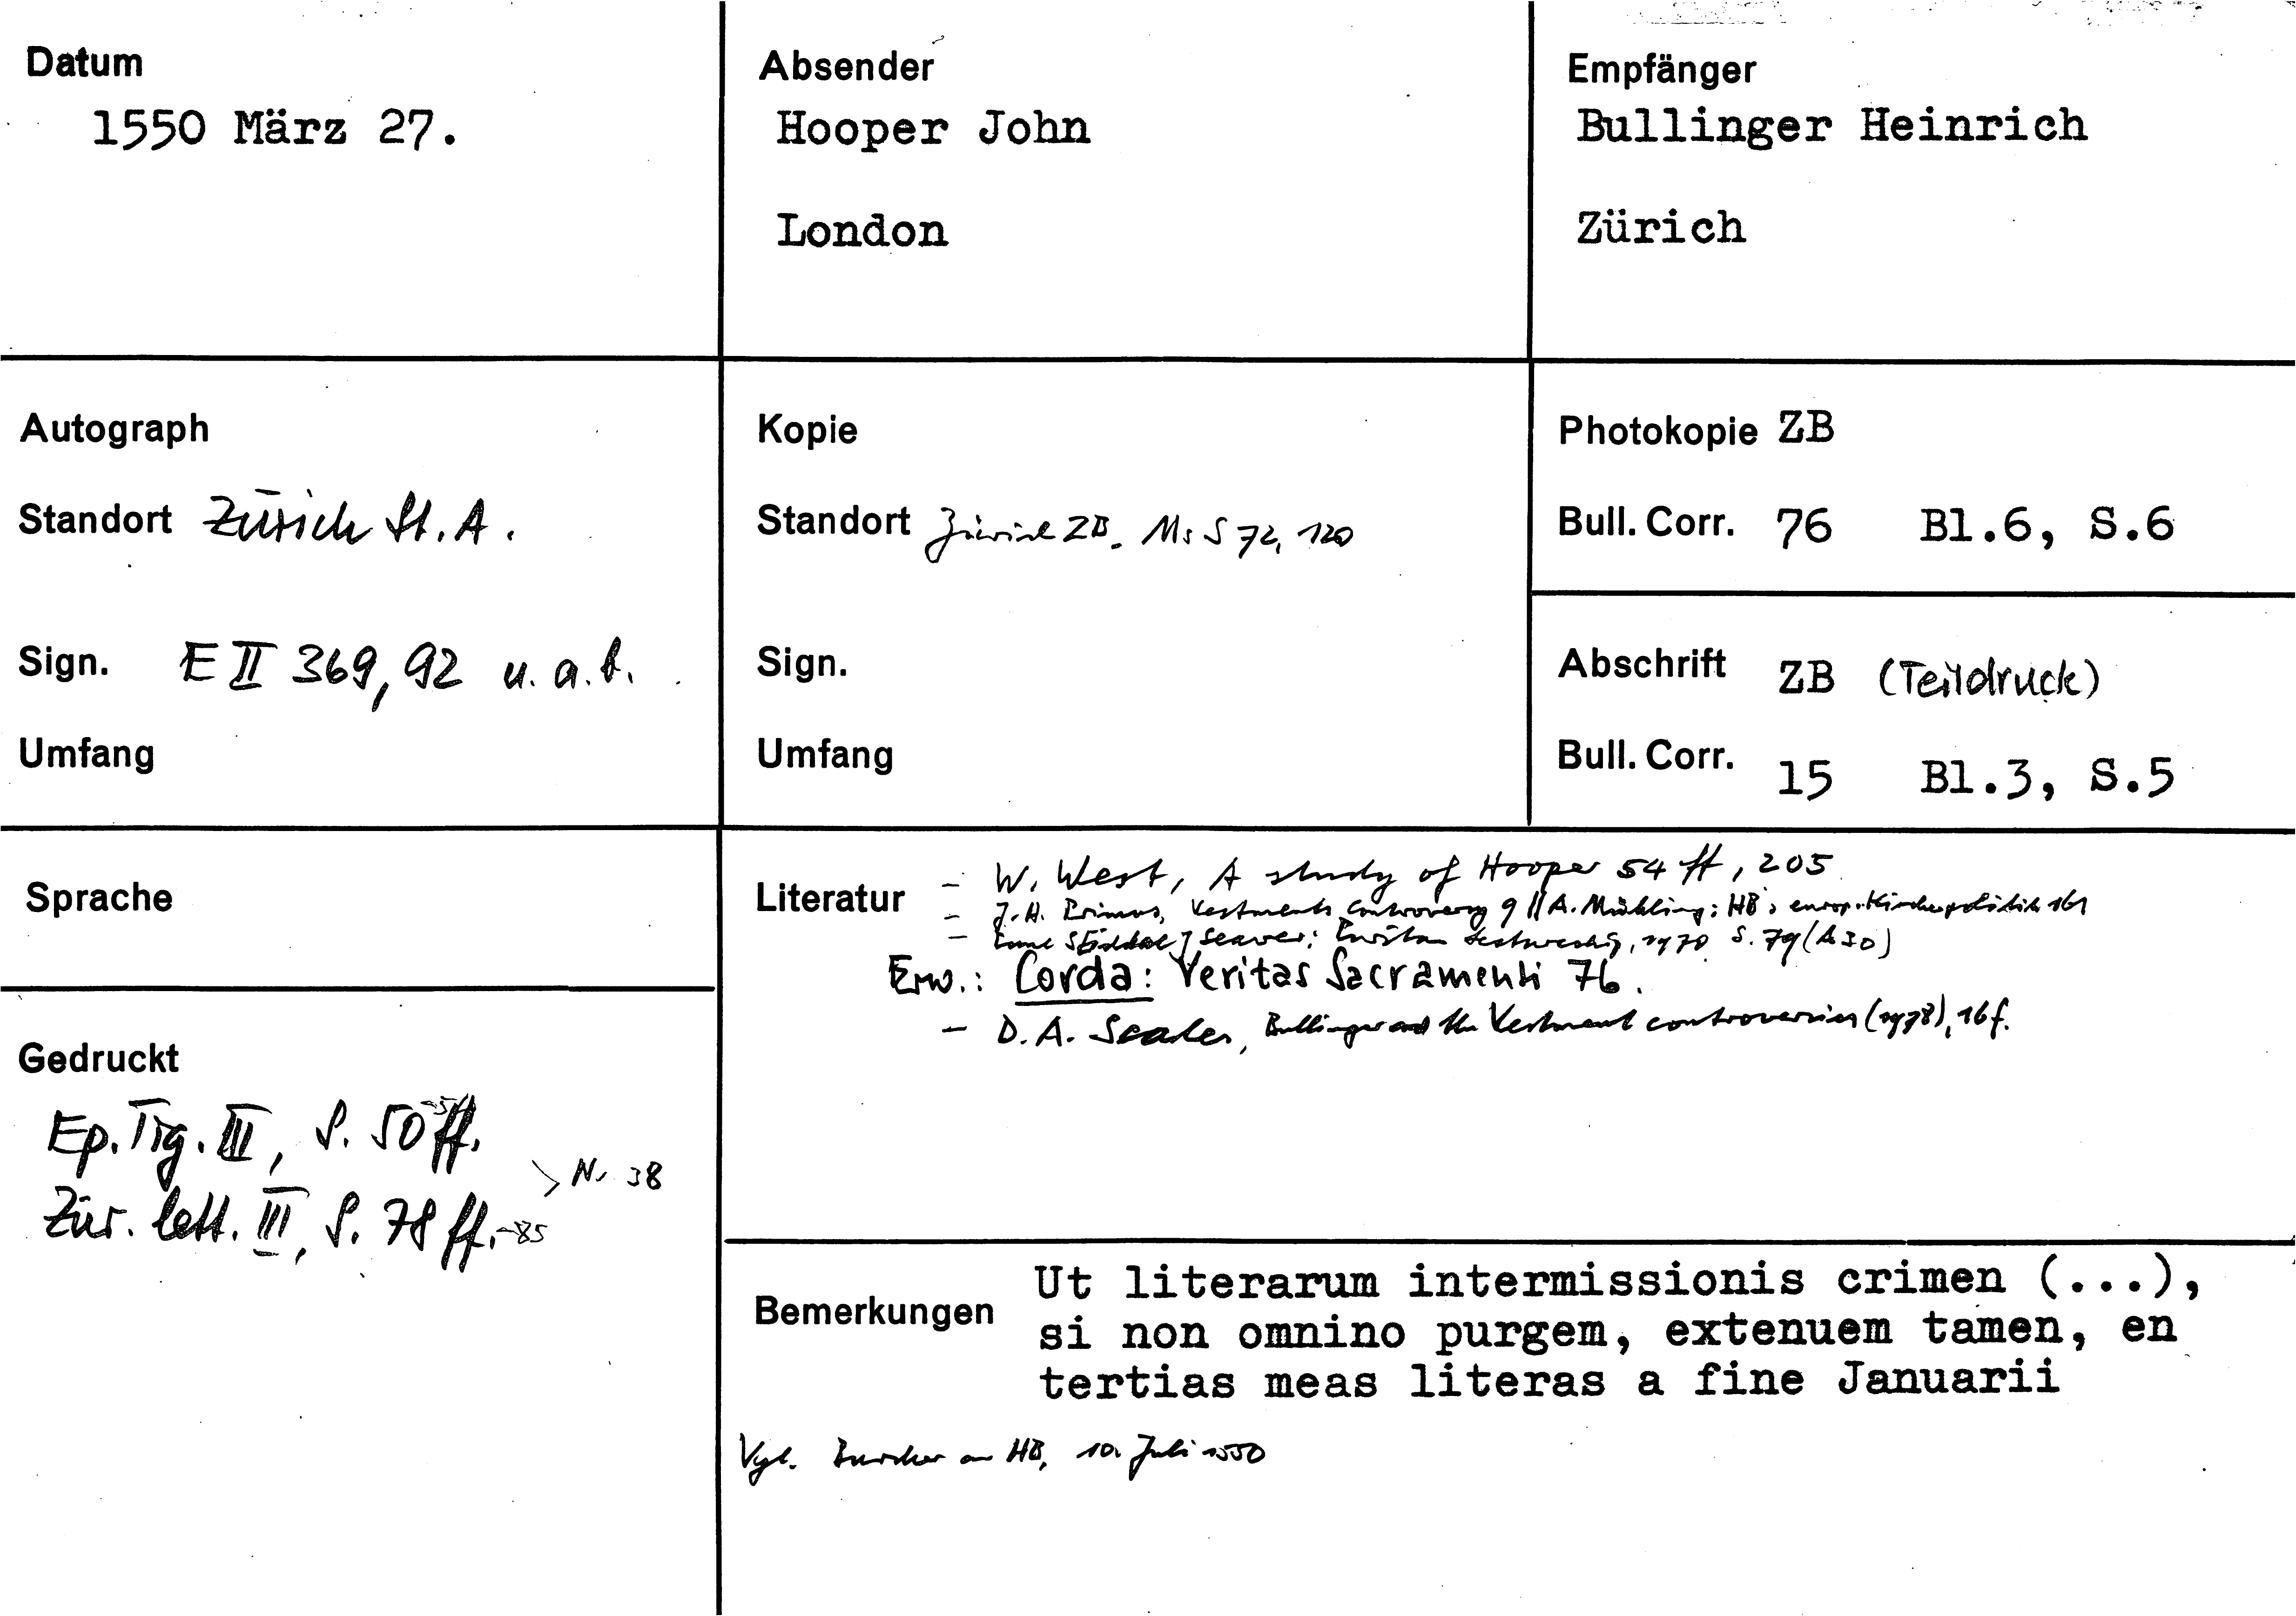 Datum
1550 März 27.
Absender
Hooper John
London
Empfänger
Bullinger Heinrich
Zürich
Autograph
Standort Zürich St. A.
Sign. E II 369, 92 u. a. t.
Umfang
Kopie
Standort Zürich ZB. Ms S 72, 120
Sign.
Umfang
Photokopie ZB
Bull. Corr. 76 Bl.6, S.6
Abschrift ZB (Teildruck)
Bull. Corr. 15 Bl.3, S.5
Sprache
Gedruckt
Ep. Tig. III, S. 50 ff.
Zür. lett. III, S. 78 ff. -85
Nr 38
Literatur
- W. West, A study of Hooper 54 ff, 205
- J. H. Primus, Vestments Controversy 9 // A. Mühling: HB's europ. Kirchenpolitik 161
- Seaver: Puritan 1970 S. 79 (A 30)
Erw.: Corda: Veritas Sacramenti 76.
- D. A. Scales, Bullinger and the Vestment controversies (1978), 16 f.
Bemerkungen
Ut literarum intermissionis crimen (...),
si non omnino purgem, extenuem tamen, en
tertias meas literas a fine Januarii
Vgl. Burcher an HB, 10. Juli 1550